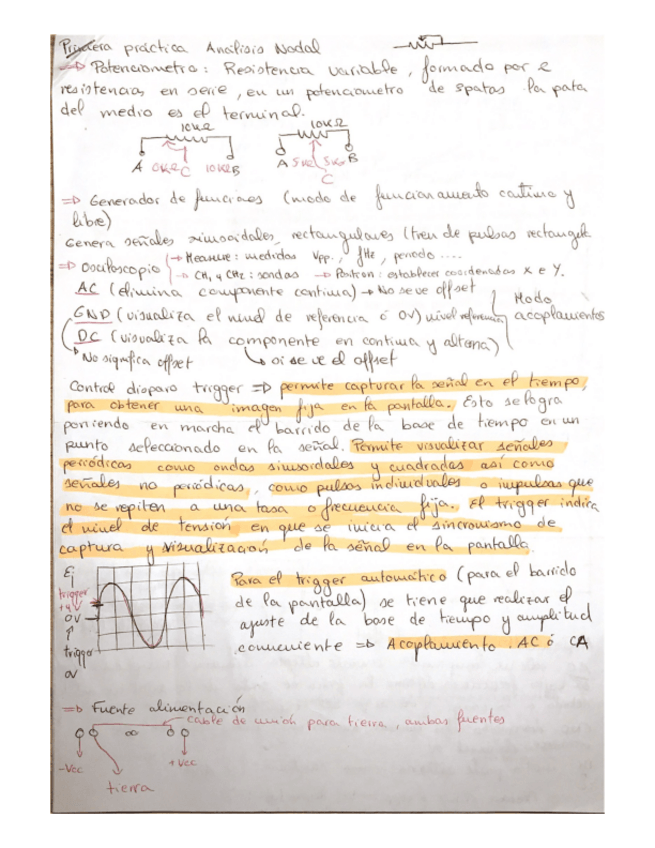 Primera práctica Análisis Nodal
⇒ Potenciometro: Resistencia variable, formado por 2
resistencias en serie, en un potenciometro de 3 patas la pata
del medio es el terminal.
10KΩ 10KΩ
A 0KΩ C 10KΩ B A 5KΩ 5KΩ B
C
⇒ Generador de funciones (modo de funcionamiento continuo y
libre)
Genera señales sinusoidales, rectangulares (tren de pulsos rectangul
⇒ Osciloscopio → Measure: medidas Vpp, fHz, periodo ....
→ CH1 y CH2: sondas → Position: establecer coordenadas X e Y.
AC (elimina componente continua) → No se ve offset
GND (visualiza el nivel de referencia ó 0V) nivel referencia
Modo
acoplamientos
DC (visualiza la componente en continua y alterna)
No significa offset si se ve el offset
Control disparo trigger ⇒ permite capturar la señal en el tiempo,
para obtener una imagen fija en la pantalla. Esto se logra
poniendo en marcha el barrido de la base de tiempo en un
punto seleccionado en la señal. Permite visualizar señales
periódicas como ondas sinusoidales y cuadradas así como
señales no periódicas, como pulsos individuales o impulsos que
no se repiten a una tasa o frecuencia fija. El trigger indica
el nivel de tensión en que se inicia el sincronismo de
captura y visualización de la señal en la pantalla.
Ej
trigger
0V
trigger
0V
Para el trigger automático (para el barrido
de la pantalla) se tiene que realizar el
ajuste de la base de tiempo y amplitud
conveniente ⇒ Acoplamiento AC ó CA
⇒ Fuente alimentación
cable de unión para tierra, ambas fuentes
-Vcc +Vcc
tierra